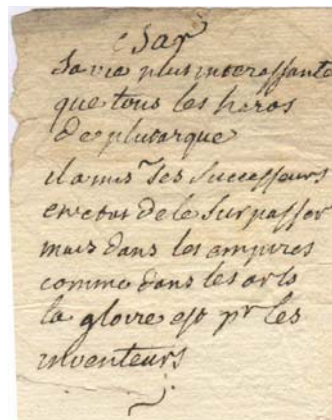 esar
sa vie plus interessante
que tous les heros
de plutarque
il a mis ses successeurs
en etat de le surpasser
mais dans les empires
comme dans les arts
la gloire est pr les
inventeurs